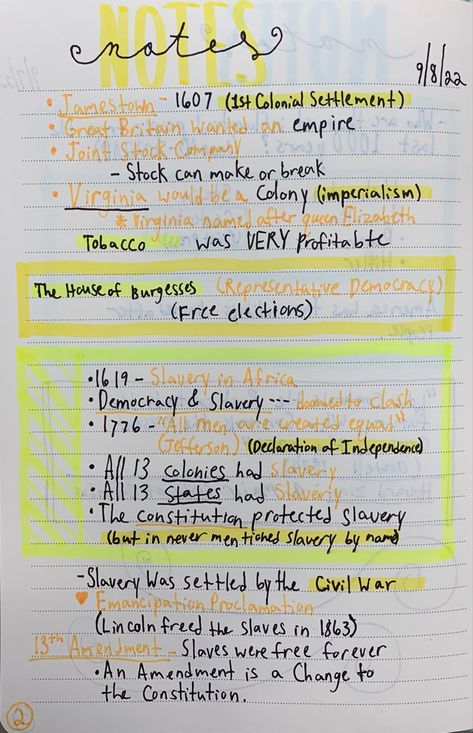 NOTES
notes
9/8/22
• Jamestown - 1607 (1st Colonial Settlement)
• Great Britain wanted an empire
• Joint Stock Company
- Stock can make or break
• Virginia would be a Colony (imperialism)
* Virginia named after queen Elizabeth
Tobacco was VERY profitable
The House of Burgesses (Representative Democracy)
(Free elections)
• 1619 - Slavery in Africa
• Democracy & Slavery --- doomed to clash
• 1776 - "All men are created equal"
(Jefferson) (Declaration of Independence)
• All 13 colonies had slavery
• All 13 states had Slavery
• The constitution protected slavery
(but in never mentioned slavery by name)
- Slavery was settled by the Civil War
♥ Emancipation Proclamation
(Lincoln freed the slaves in 1863)
13th Amendment - Slaves were free forever
• An Amendment is a Change to
the Constitution.
2